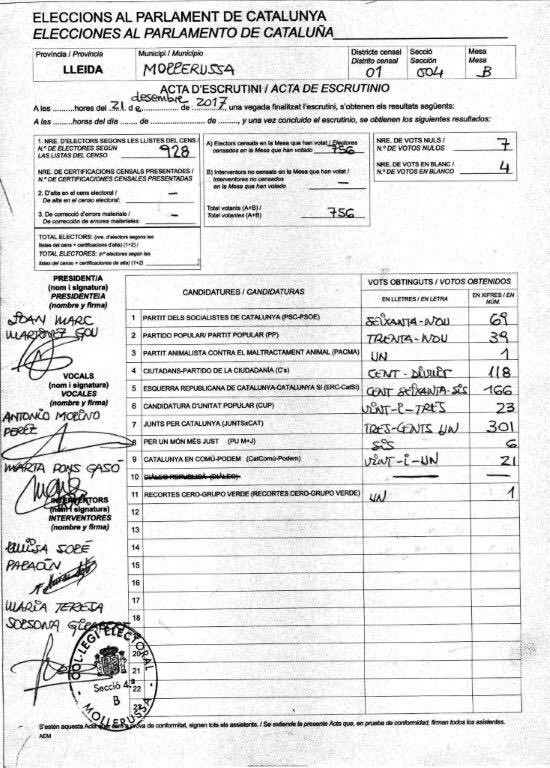 ELECCIONS AL PARLAMENT DE CATALUNYA
ELECCIONES AL PARLAMENTO DE CATALUÑA
Província / Provincia
LLEIDA
Municipi / Municipio
MOLLERUSSA
Districte censal
Distrito censal
01
Secció
Sección
004
Mesa
Mesa
B
ACTA D'ESCRUTINI / ACTA DE ESCRUTINIO
A les ..........hores del 21 de desembre de 2017, una vegada finalitzat l'escrutini, s'obtenen els resultats següents:
A las ..........horas del día ....... de .................... de ........., y una vez concluido el escrutinio, se obtienen los siguientes resultados:
1. NRE. D'ELECTORS SEGONS LES LLISTES DEL CENS /
N.º DE ELECTORES SEGÚN
LAS LISTAS DEL CENSO
928
NRE. DE CERTIFICACIONS CENSALS PRESENTADES /
N.º DE CERTIFICACIONES CENSALES PRESENTADAS
2. D'alta en el cens electoral /
De alta en el censo electoral:
—
3. De correcció d'errores materials /
De corrección de errores materiales:
—
TOTAL ELECTORS: (nre. d'electors segons les
llistes del cens + certificacions d'alta) (1+2) /
TOTAL ELECTORES: (nº electores según las
listas del censo + certificaciones de alta) (1+2)
A) Electors censats en la Mesa que han votat / Electores
censados en la Mesa que han votado
756
B) Interventors no censats en la Mesa que han votat /
Interventores no censados
en la Mesa que han votado
—
Total votants (A+B) /
Total votantes (A+B)
756
NRE. DE VOTS NULS /
N.º DE VOTOS NULOS
7
NRE. DE VOTS EN BLANC /
N.º DE VOTOS EN BLANCO
4
PRESIDENT/A
(nom i signatura)
PRESIDENTE/A
(nombre y firma)
JOAN MARC
MARTINEZ GOU
VOCALS
(nom i signatura)
VOCALES
(nombre y firma)
ANTONIO MORENO
PEREZ
MARTA PONS GASÓ
INTERVENTORS
(nom i signatura)
INTERVENTORES
(nombre y firma)
MARIA TERESA
SOLSONA
CANDIDATURES / CANDIDATURAS
VOTS OBTINGUTS / VOTOS OBTENIDOS
EN LLETRES / EN LETRA
EN XIFRES / EN NÚM.
1 PARTIT DELS SOCIALISTES DE CATALUNYA (PSC-PSOE) SEIXANTA-NOU 69
2 PARTIDO POPULAR/ PARTIT POPULAR (PP) TRENTA-NOU 39
3 PARTIT ANIMALISTA CONTRA EL MALTRACTAMENT ANIMAL (PACMA) UN 1
4 CIUTADANS-PARTIDO DE LA CIUDADANÍA (C's) CENT-DIVUIT 118
5 ESQUERRA REPUBLICANA DE CATALUNYA-CATALUNYA SÍ (ERC-CatSí) CENT SEIXANTA-SIS 166
6 CANDIDATURA D'UNITAT POPULAR (CUP) VINT-I-TRES 23
7 JUNTS PER CATALUNYA (JUNTSxCAT) TRES-CENTS UN 301
8 PER UN MÓN MÉS JUST (PU M+J) SIS 6
9 CATALUNYA EN COMÚ-PODEM (CatComú-Podem) VINT-I-UN 21
10 DIÀLEG REPUBLICÀ (DIÀLEG) — —
11 RECORTES CERO-GRUPO VERDE (RECORTES CERO-GRUPO VERDE) UN 1
12
13
14
15
16
17
18
20
21
22
23
COL·LEGI ELECTORAL
Secció 4ª
B
MOLLERUSSA
S'estén aquesta Acta que, com a prova de conformitat, signen tots els assistents. / Se extiende la presente Acta que, en prueba de conformidad, firman todos los asistentes.
AEM